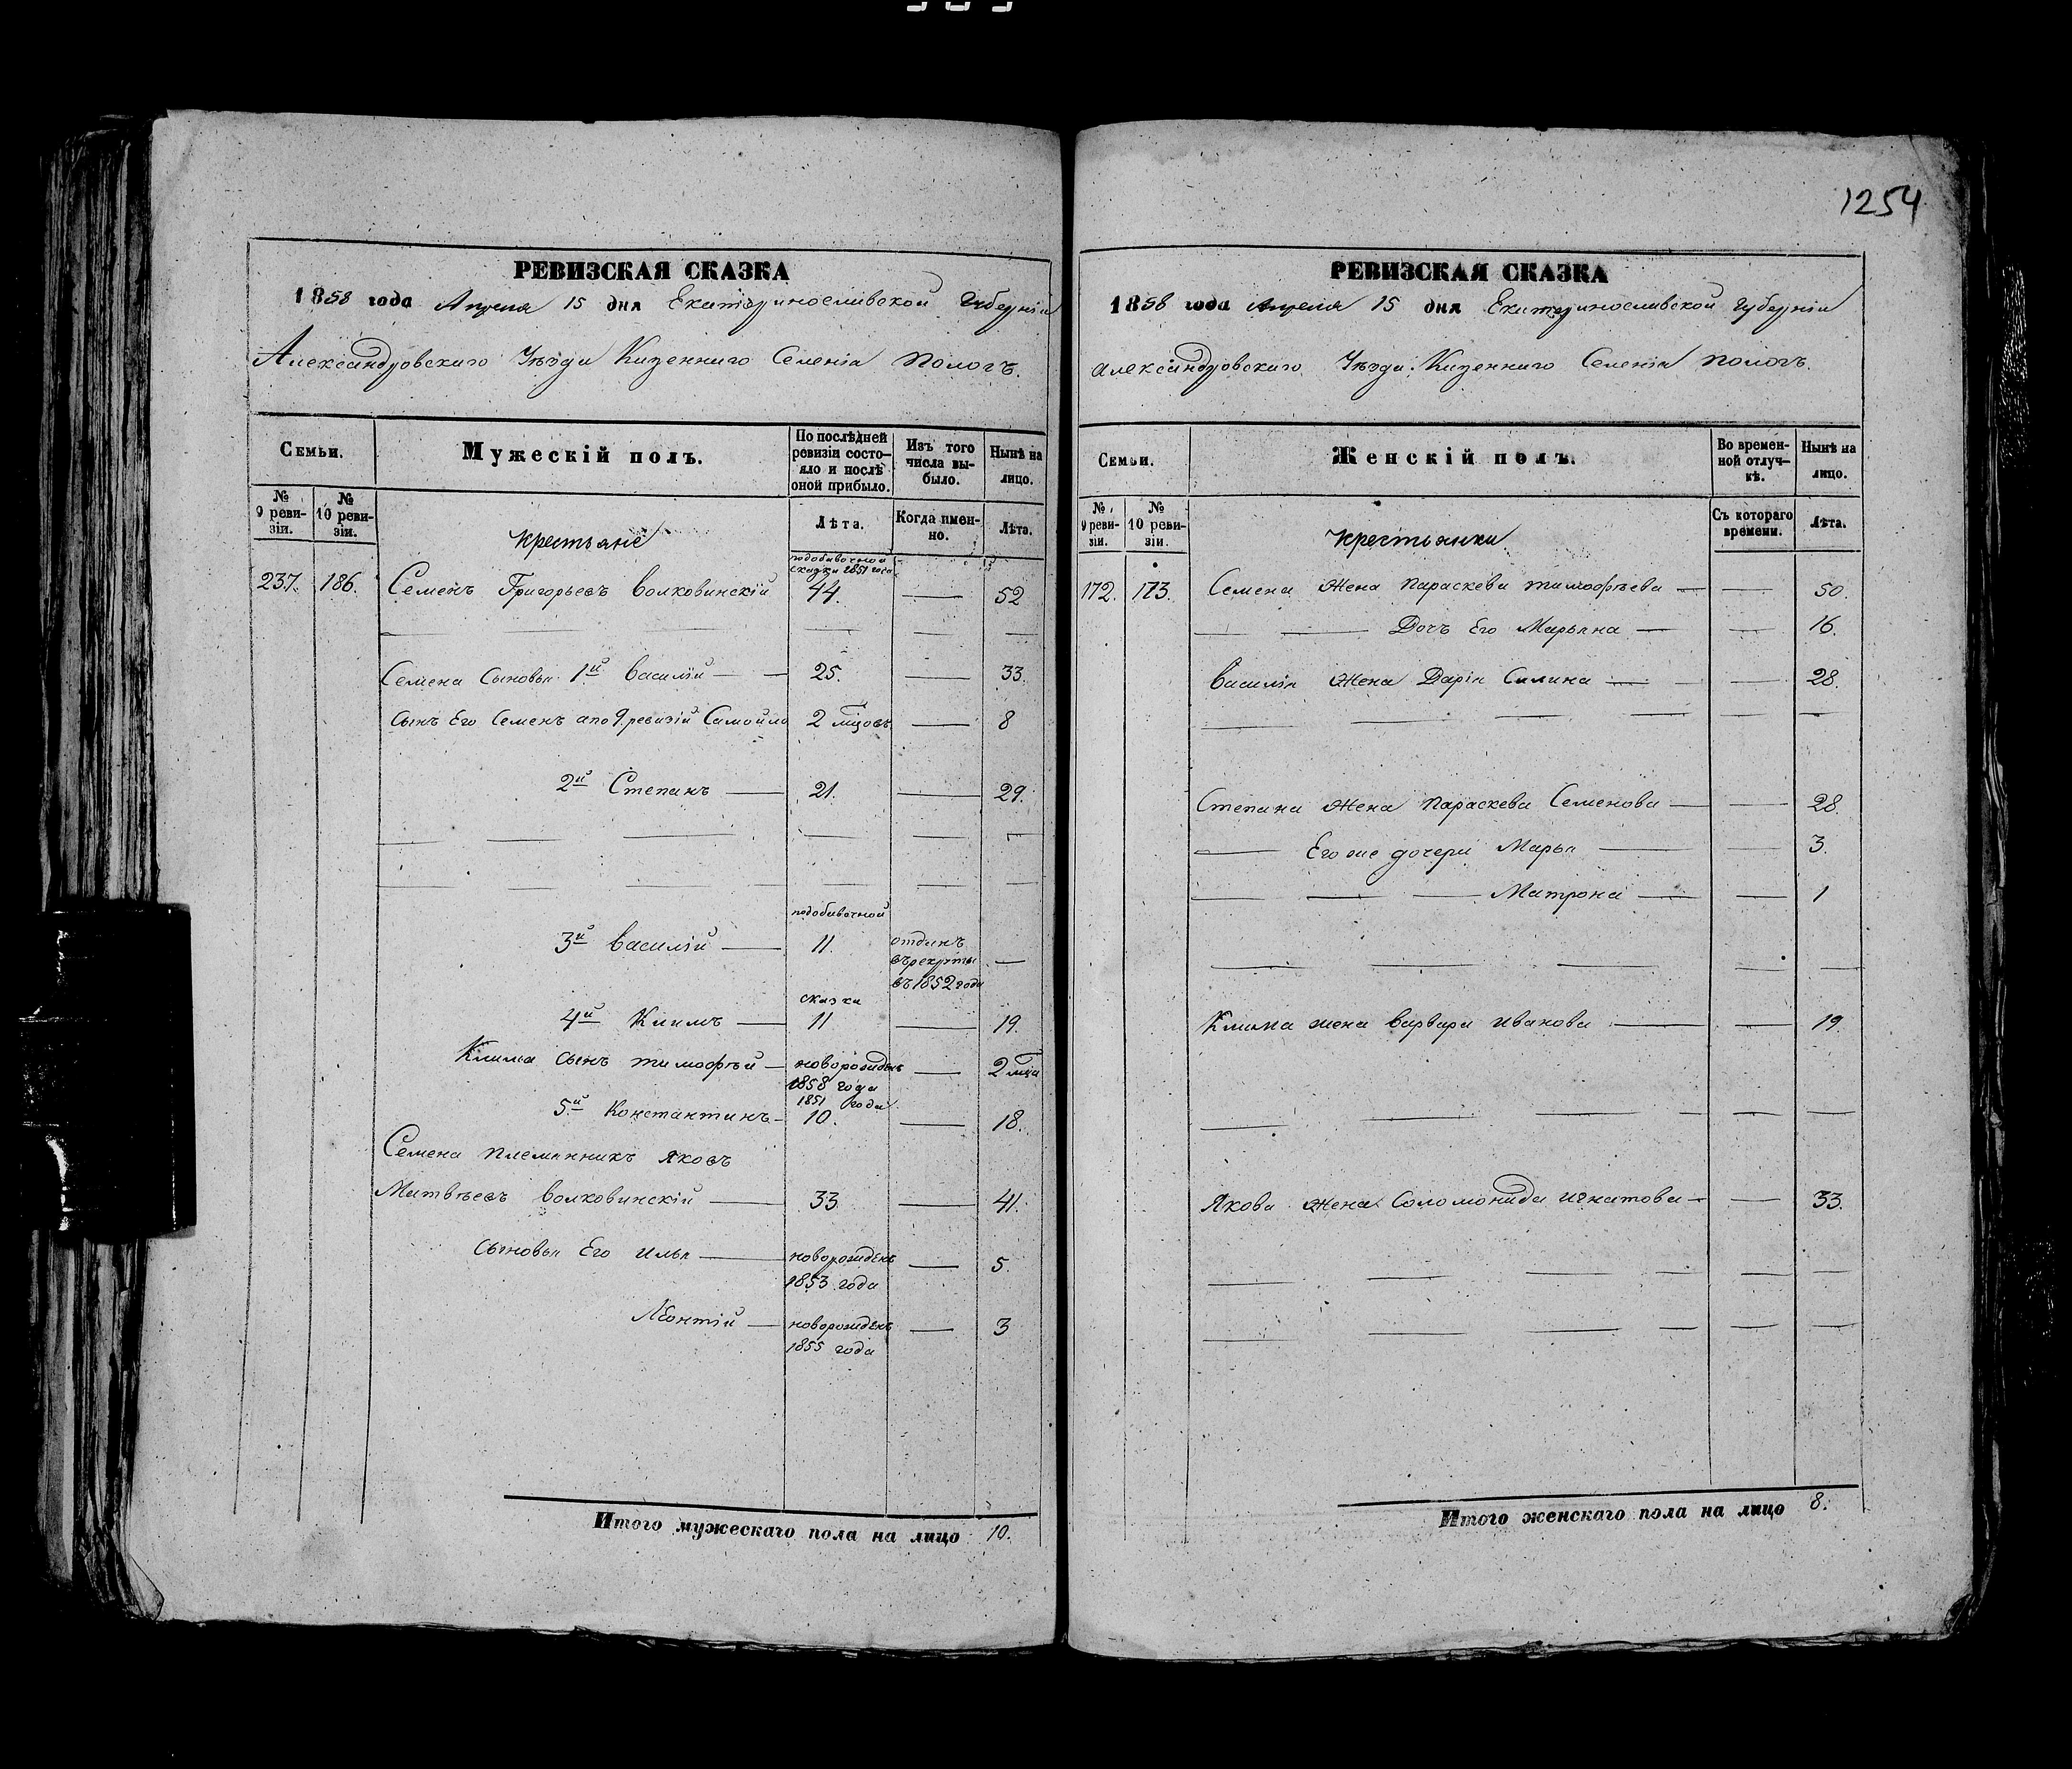 1254
РЕВИЗСКАЯ СКАЗКА
1858 года Апреля 15 дня Екатеринославской Губерніи
Александровскаго Уѣзда Казеннаго Селенія Пологъ.
Семьи.
Мужескій полъ.
По послѣдней ревизіи состояло и послѣ оной прибыло.
Изъ того числа выбыло.
Нынѣ на лицо.
№ 9 ревизіи.
№ 10 ревизіи.
Крестьяне
Лѣта.
Когда именно.
Лѣта.
подобавочной сказки 1851 года
237. 186. Семенъ Григорьевъ Волковинскій 44. — 52
Семена Сыновья 1й Василій — 25. — 33.
Сынъ Его Семенъ а по 9. ревизій Самойло 2 мцовъ — 8
2й Степанъ — 21. — 29.
подобавочной
3й Василій — 11. отданъ въ рекруты въ 1852 года —
сказки
4й Климъ — 11 — 19.
Клима сынъ Тимофѣй — новорожденъ 1858 года — 2 мца
1851 года
5й Константинъ — 10. — 18.
Семена племянникъ Яковъ
Матвѣевъ Волковинскій — 33 — 41.
Сыновья Его Илья — новорожденъ 1853 года — 5.
Леонтій — новорожденъ 1855 года — 3
Итого мужескаго пола на лицо 10.
РЕВИЗСКАЯ СКАЗКА
1858 года Апреля 15 дня Екатеринославской Губерніи
Александровскаго Уѣзда Казеннаго Селенія Пологъ.
Семьи.
Женскій полъ.
Во временной отлучкѣ.
Нынѣ на лицо.
№ 9 ревизіи.
№ 10 ревизіи.
Крестьянки
Съ котораго времени.
Лѣта.
172. 173. Семена Жена Параскева Тимофѣева — — 50.
Дочь Его Марьяна — — 16.
Василія Жена Дарія Силина — — 28.
Степана Жена Параскева Семенова — — 28
Его же дочери Марья — — 3.
Матрона — — 1
Клима жена Варвара Иванова — — 19.
Якова Жена Соломонида Игнатова — — 33.
Итого женскаго пола на лицо 8.